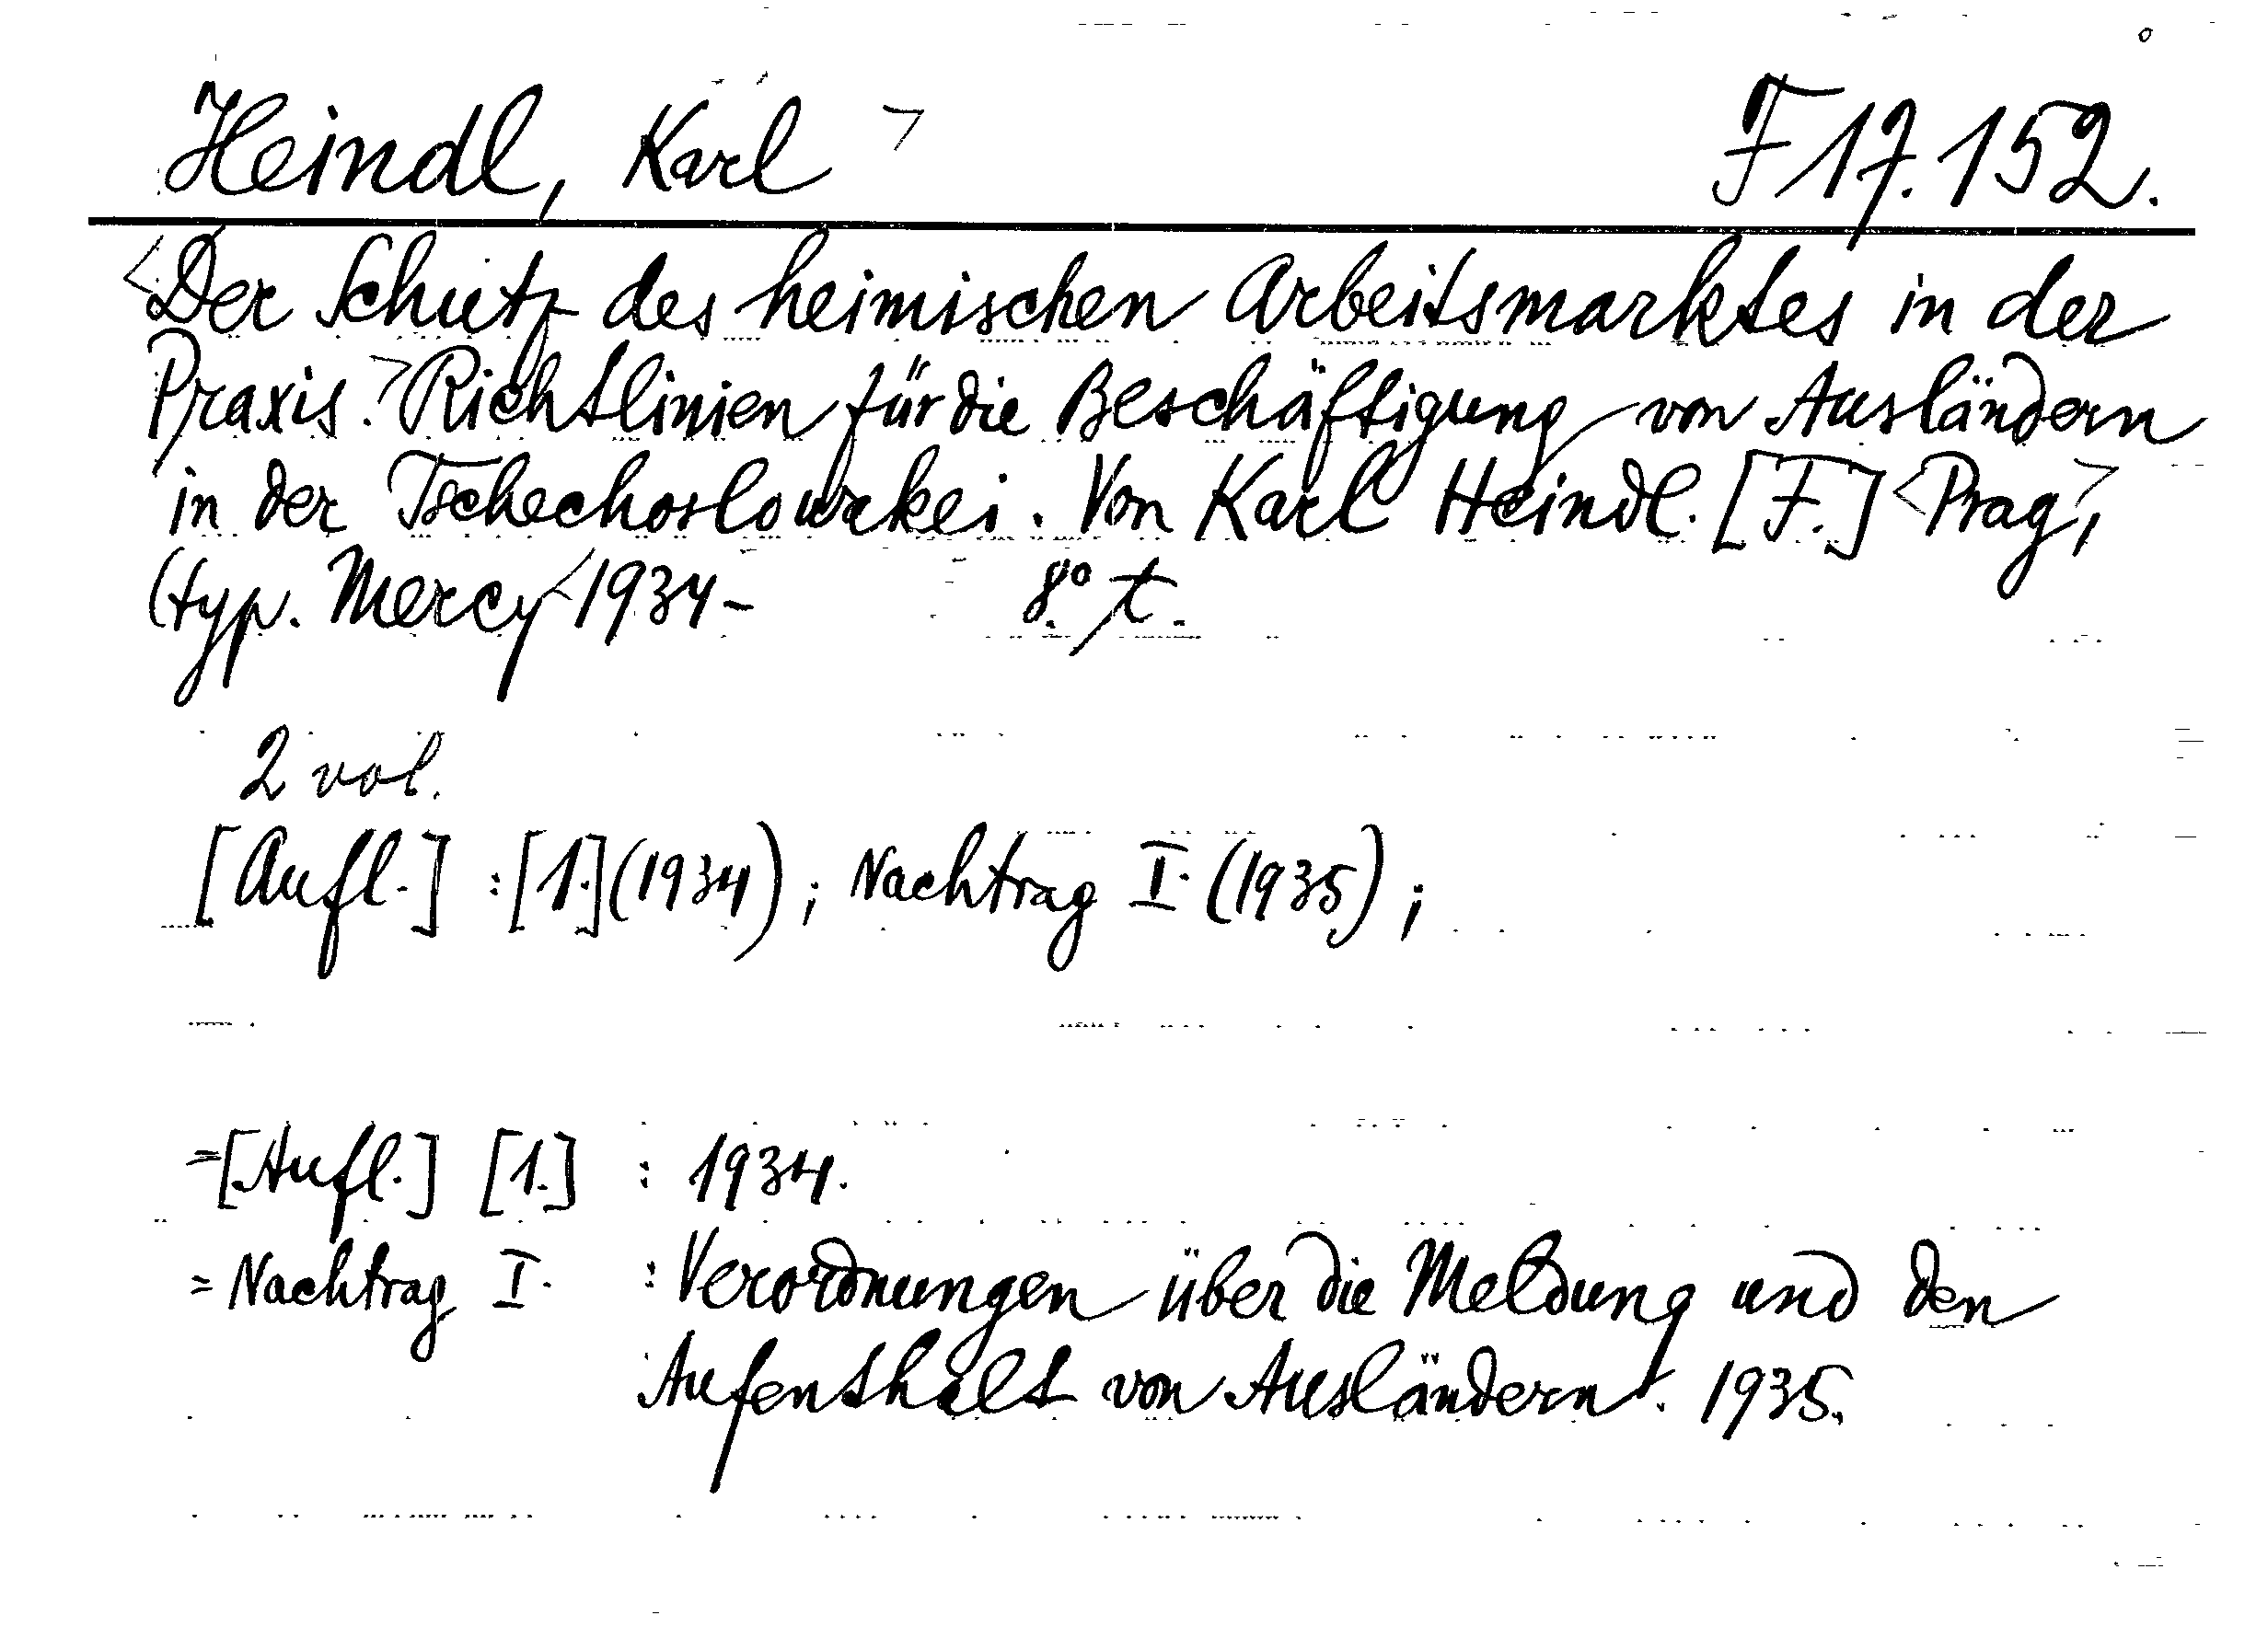 Heindl, Karl > F 17.152.
<Der Schutz des heimischen Arbeitsmarktes in der
Praxis.> Richtlinien für die Beschäftigung von Ausländern
in der Tschechoslowakei. Von Karl Heindl. [F.] <Prag>,
(typ. Mercy <1934- 8° t.
2 vol.
[Aufl.] : [1.] (1934) ; Nachtrag I. (1935) ;
= [Aufl.] [1.] : 1934.
= Nachtrag I. : Verordnungen über die Meldung und den
Aufenthalt von Ausländern. 1935.